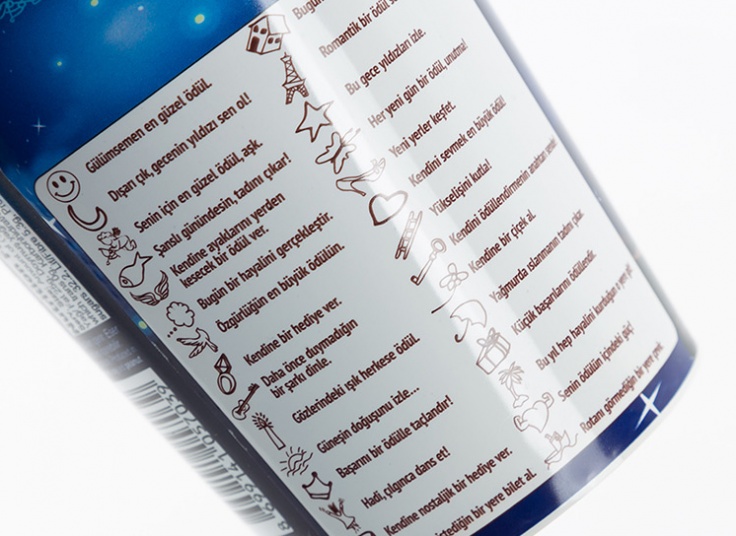 Gülümsemen en güzel ödül.
Dışarı çık, gecenin yıldızı sen ol!
Senin için en güzel ödül, aşk.
Şanslı günündesin, tadını çıkar!
Kendine ayaklarını yerden
kesecek bir ödül ver.
Bugün bir hayalini gerçekleştir.
Özgürlüğün en büyük ödülün.
Kendine bir hediye ver.
Daha önce duymadığın
bir şarkı dinle.
Gözlerindeki ışık herkese ödül.
Güneşin doğuşunu izle...
Başarını bir ödülle taçlandır!
Hadi, çılgınca dans et!
Kendine nostaljik bir hediye ver.
istediğin bir yere bilet al.
Bugün
Romantik bir ödül
Bu gece yıldızları izle.
Her yeni gün bir ödül, unutma!
Yeni yerler keşfet.
Kendini sevmek en büyük ödül!
Yükselişini kutla!
Kendini ödüllendirmenin anahtarı sende.
Kendine bir çiçek al.
Yağmurda ıslanmanın tadını çıkar.
Küçük başarılarını ödüllendir.
Bu yıl hep hayalini kurduğun o yere git.
Senin ödülün içindeki güç!
Rotanı görmediğin bir yere çevir.
8 699141 057039